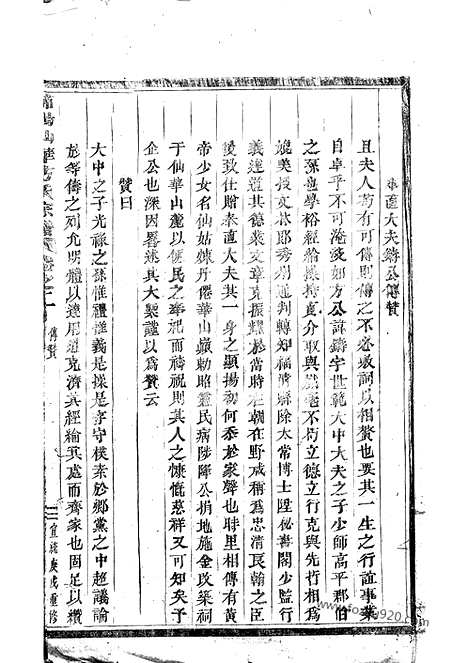 奉直大夫鑄公傳贊
且夫人苟有可傳則傳之不必敷詞以相贊也要其一生之行誼事業
自卓乎不可淹沒如方公諱鑄字世範大中大夫之子少師高平郡伯
之孫也學裕經綸操貞介取與毫不苟立德立行克與先哲相爲
媲美授文林郎秀州通判轉知福清縣除太常博士陞秘書閣少監行
義達道其德業文章克振耀於當時在朝在野咸稱爲忠清良翰之臣
後致仕賜奉直大夫其一身之顯揚初何忝於家聲也哉里相傳有黃
帝少女名仙姑煉丹僊華山巔昭靈民病陟降公捐地施金改築祠
于仙華山麓以便民之奉祀而禱祝則其人之慷慨慈祥又可知矣予
企公也深因畧述其大槩謹以爲贊云
贊曰
大中之子光祿之孫惟禮惟義是操是存守樸素於鄉黨之中超議論
於等儔之列允明體以達用洵克濟其經綸異處而齊家也固足以纘
傳贊
宣統庚戌重修